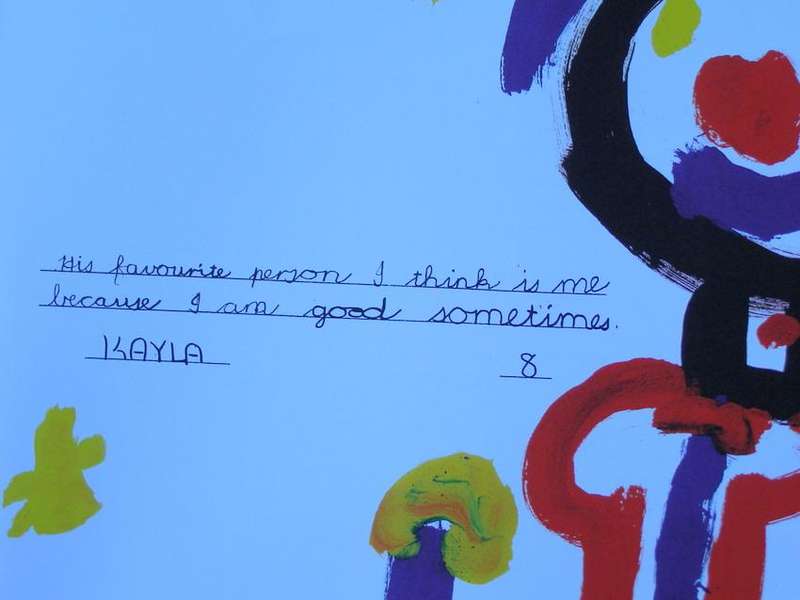 His favourite person I think is me
because I am good sometimes.
KAYLA 8